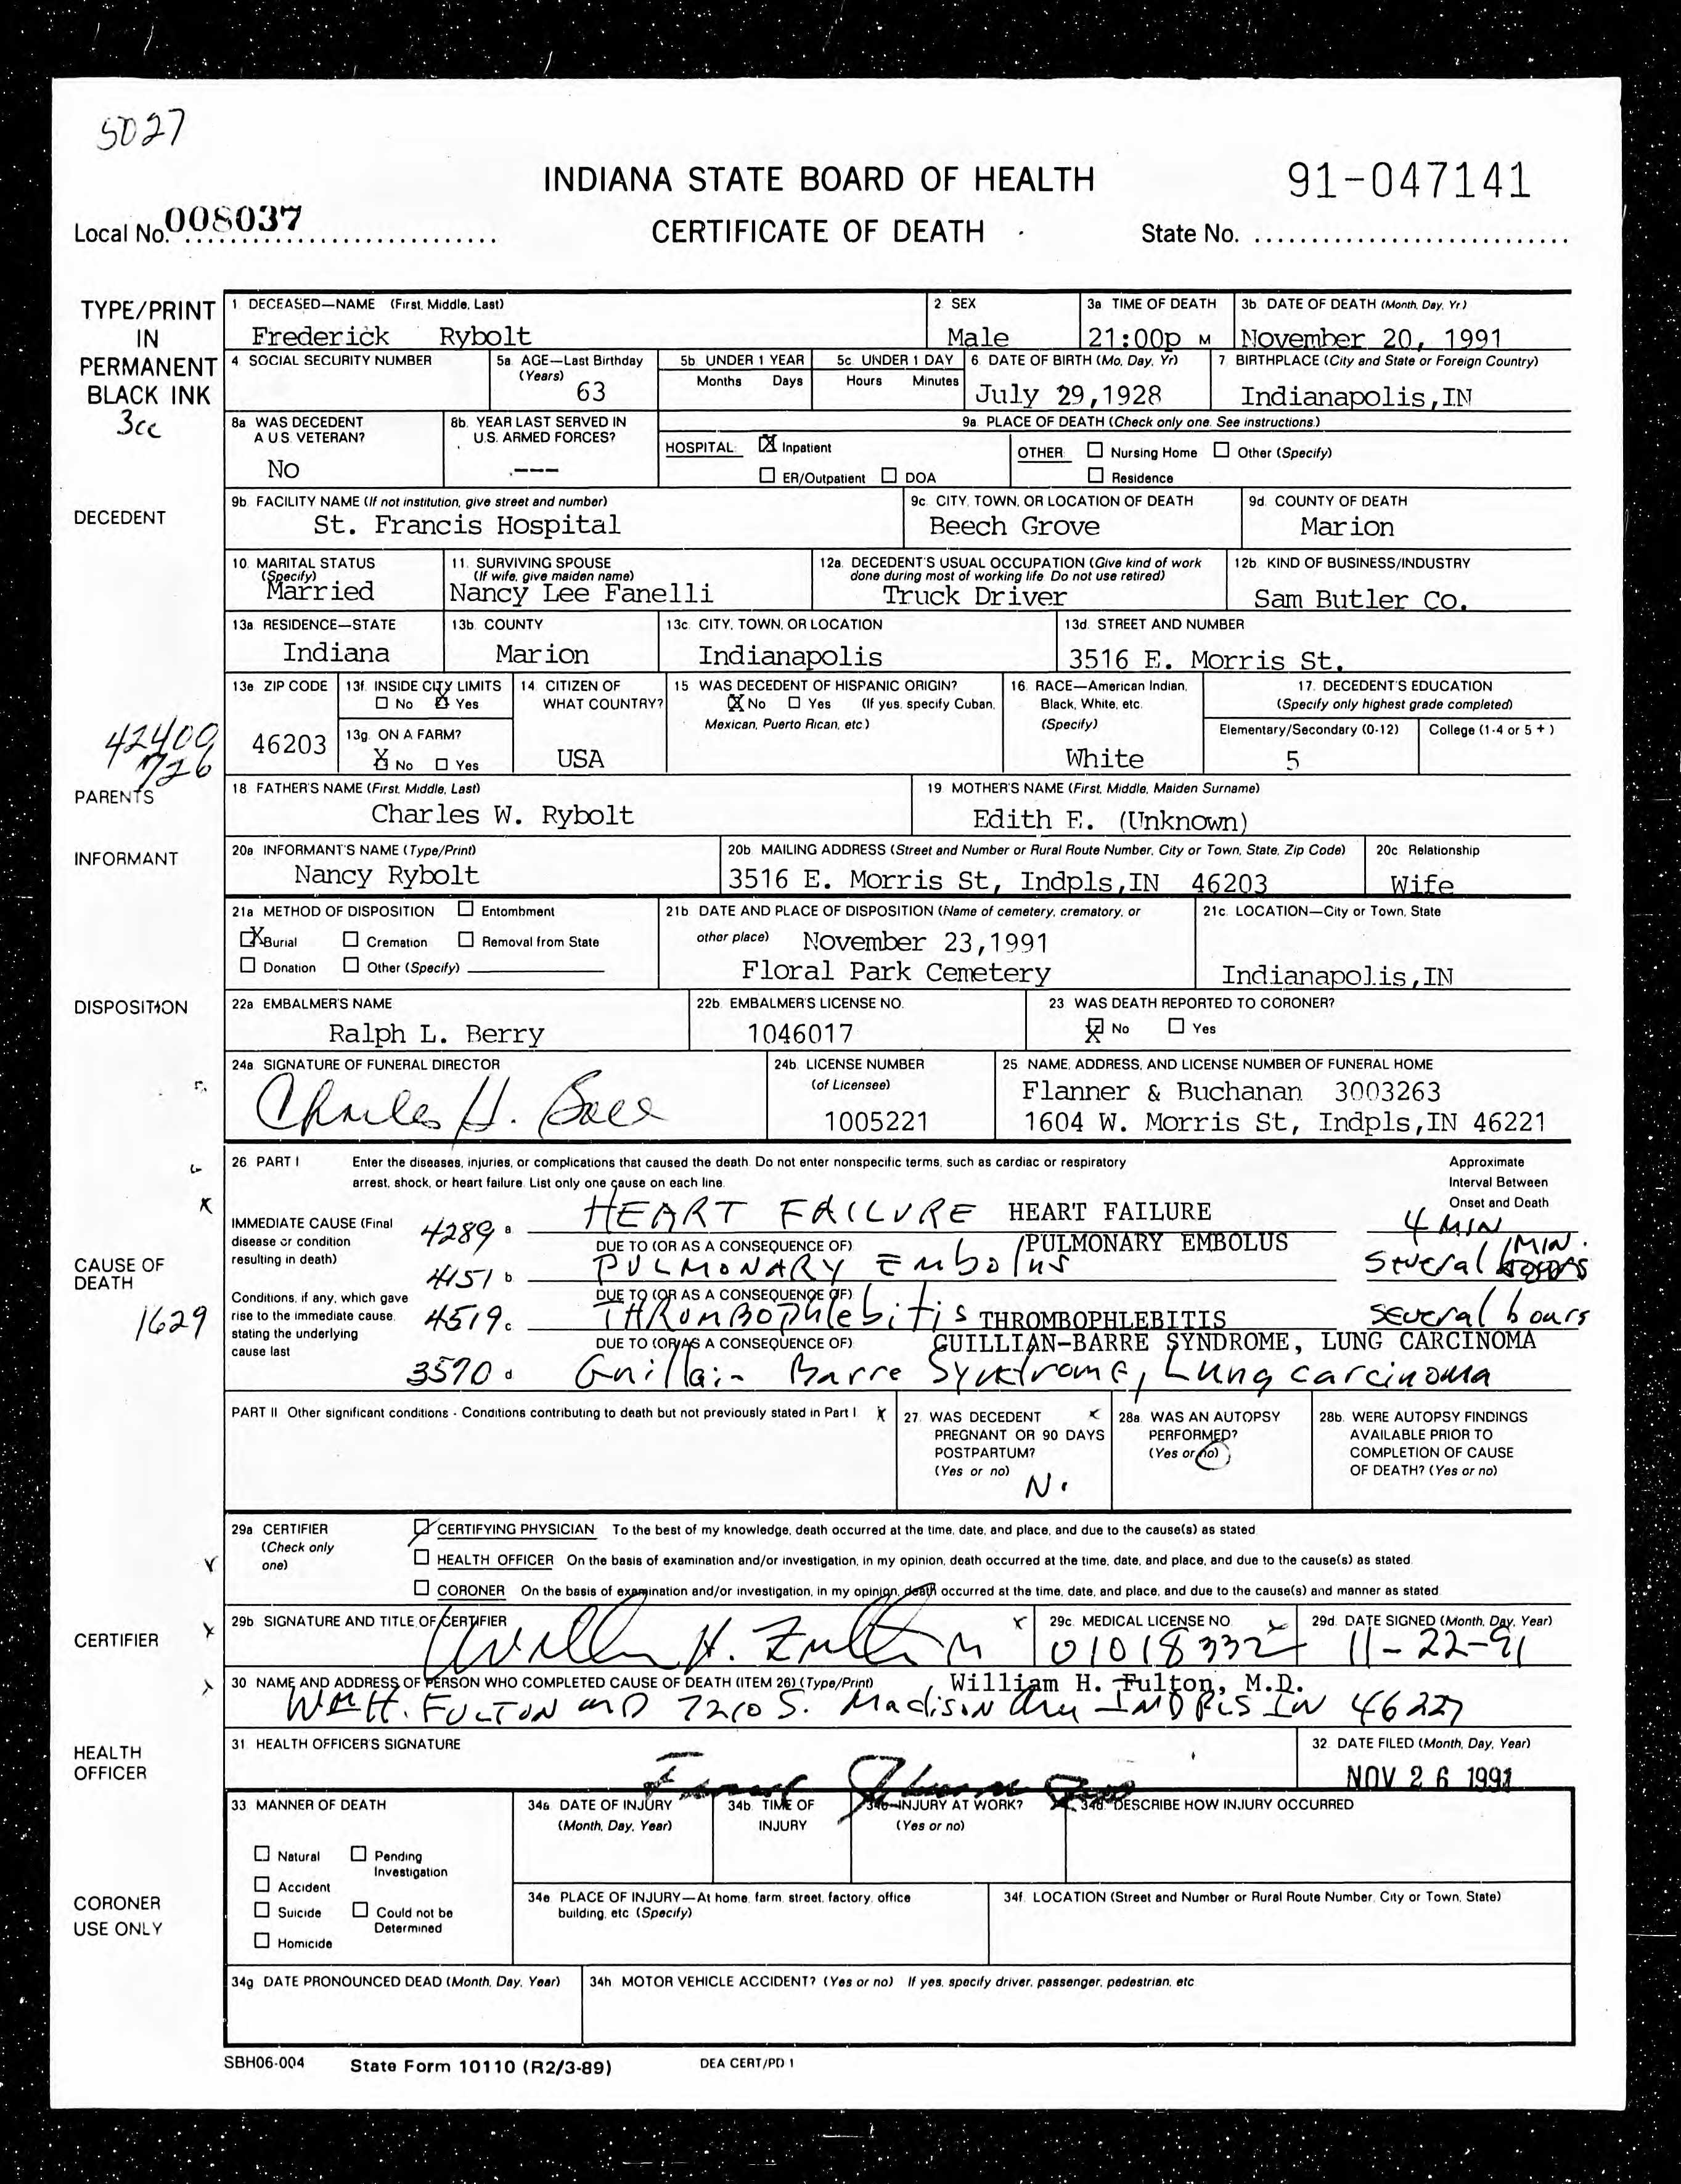 5027
INDIANA STATE BOARD OF HEALTH
91-047141
Local No. 008037
CERTIFICATE OF DEATH
State No.
TYPE/PRINT
IN
PERMANENT
BLACK INK
3cc
1 DECEASED—NAME (First, Middle, Last)
Frederick Rybolt
2 SEX
Male
3a TIME OF DEATH
21:00p M
3b. DATE OF DEATH (Month, Day, Yr.)
November 20, 1991
4 SOCIAL SECURITY NUMBER
5a. AGE—Last Birthday
(Years)
63
5b UNDER 1 YEAR
Months Days
5c UNDER 1 DAY
Hours Minutes
6 DATE OF BIRTH (Mo, Day, Yr)
July 29,1928
7. BIRTHPLACE (City and State or Foreign Country)
Indianapolis,IN
DECEDENT
8a WAS DECEDENT
A U.S. VETERAN?
No
8b. YEAR LAST SERVED IN
U.S. ARMED FORCES?
---
9a. PLACE OF DEATH (Check only one. See instructions.)
HOSPITAL: X Inpatient
ER/Outpatient DOA
OTHER: Nursing Home Other (Specify)
Residence
9b. FACILITY NAME (If not institution, give street and number)
St. Francis Hospital
9c. CITY, TOWN, OR LOCATION OF DEATH
Beech Grove
9d. COUNTY OF DEATH
Marion
10. MARITAL STATUS
(Specify)
Married
11. SURVIVING SPOUSE
(If wife, give maiden name)
Nancy Lee Fanelli
12a. DECEDENT'S USUAL OCCUPATION (Give kind of work
done during most of working life. Do not use retired)
Truck Driver
12b. KIND OF BUSINESS/INDUSTRY
Sam Butler Co.
13a RESIDENCE—STATE
Indiana
13b. COUNTY
Marion
13c. CITY, TOWN, OR LOCATION
Indianapolis
13d. STREET AND NUMBER
3516 E. Morris St.
13e ZIP CODE
46203
13f. INSIDE CITY LIMITS
No X Yes
13g. ON A FARM?
X No Yes
14. CITIZEN OF
WHAT COUNTRY?
USA
15 WAS DECEDENT OF HISPANIC ORIGIN?
X No Yes (If yes, specify Cuban,
Mexican, Puerto Rican, etc.)
16. RACE—American Indian,
Black, White, etc.
(Specify)
White
17. DECEDENT'S EDUCATION
(Specify only highest grade completed)
Elementary/Secondary (0-12)
5
College (1-4 or 5 + )
42400
726
PARENTS
18 FATHER'S NAME (First, Middle, Last)
Charles W. Rybolt
19 MOTHER'S NAME (First, Middle, Maiden Surname)
Edith E. (Unknown)
INFORMANT
20a INFORMANT'S NAME (Type/Print)
Nancy Rybolt
20b. MAILING ADDRESS (Street and Number or Rural Route Number, City or Town, State, Zip Code)
3516 E. Morris St, Indpls,IN 46203
20c Relationship
Wife
21a METHOD OF DISPOSITION Entombment
X Burial Cremation Removal from State
Donation Other (Specify)
21b DATE AND PLACE OF DISPOSITION (Name of cemetery, crematory, or
other place) November 23,1991
Floral Park Cemetery
21c. LOCATION—City or Town, State
Indianapolis,IN
DISPOSITION
22a EMBALMER'S NAME
Ralph L. Berry
22b EMBALMER'S LICENSE NO.
1046017
23 WAS DEATH REPORTED TO CORONER?
X No Yes
24a SIGNATURE OF FUNERAL DIRECTOR
Charles H.
24b. LICENSE NUMBER
(of Licensee)
1005221
25 NAME, ADDRESS, AND LICENSE NUMBER OF FUNERAL HOME
Flanner & Buchanan 3003263
1604 W. Morris St, Indpls,IN 46221
26 PART I Enter the diseases, injuries, or complications that caused the death. Do not enter nonspecific terms, such as cardiac or respiratory
arrest, shock, or heart failure. List only one cause on each line.
Approximate
Interval Between
Onset and Death
CAUSE OF
DEATH
1629
IMMEDIATE CAUSE (Final
disease or condition
resulting in death)
4289 a HEART FAILURE HEART FAILURE 4 MIN
DUE TO (OR AS A CONSEQUENCE OF) PULMONARY EMBOLUS
4151 b PULMONARY Embolus Several MIN.
Conditions, if any, which gave
rise to the immediate cause,
stating the underlying
cause last
DUE TO (OR AS A CONSEQUENCE OF)
4519 c. THROMBOPhlebitis THROMBOPHLEBITIS Several hours
DUE TO (OR AS A CONSEQUENCE OF) GUILLIAN-BARRE SYNDROME, LUNG CARCINOMA
3570 d Guillain Barre Syndrome, Lung carcinoma
PART II Other significant conditions - Conditions contributing to death but not previously stated in Part I
27. WAS DECEDENT
PREGNANT OR 90 DAYS
POSTPARTUM?
(Yes or no)
No
28a. WAS AN AUTOPSY
PERFORMED?
(Yes or no)
28b. WERE AUTOPSY FINDINGS
AVAILABLE PRIOR TO
COMPLETION OF CAUSE
OF DEATH? (Yes or no)
29a CERTIFIER
(Check only
one)
CERTIFYING PHYSICIAN To the best of my knowledge, death occurred at the time, date, and place, and due to the cause(s) as stated
HEALTH OFFICER On the basis of examination and/or investigation, in my opinion, death occurred at the time, date, and place, and due to the cause(s) as stated
CORONER On the basis of examination and/or investigation, in my opinion, death occurred at the time, date, and place, and due to the cause(s) and manner as stated
CERTIFIER
29b SIGNATURE AND TITLE OF CERTIFIER
William H. Fulton M
29c. MEDICAL LICENSE NO.
01018332
29d. DATE SIGNED (Month, Day, Year)
11-22-91
30 NAME AND ADDRESS OF PERSON WHO COMPLETED CAUSE OF DEATH (ITEM 26) (Type/Print) William H. Fulton, M.D.
Wm H. FULTON MD 7210 S. Madison Ave INDPLS IN 46227
HEALTH
OFFICER
31. HEALTH OFFICER'S SIGNATURE
32 DATE FILED (Month, Day, Year)
NOV 26 1991
CORONER
USE ONLY
33 MANNER OF DEATH
Natural Pending
Investigation
Accident
Suicide Could not be
Determined
Homicide
34a DATE OF INJURY
(Month, Day, Year)
34b. TIME OF
INJURY
34c INJURY AT WORK?
(Yes or no)
34d. DESCRIBE HOW INJURY OCCURRED
34e PLACE OF INJURY—At home, farm, street, factory, office
building, etc (Specify)
34f. LOCATION (Street and Number or Rural Route Number, City or Town, State)
34g DATE PRONOUNCED DEAD (Month, Day, Year)
34h MOTOR VEHICLE ACCIDENT? (Yes or no) If yes, specify driver, passenger, pedestrian, etc
SBH06-004
State Form 10110 (R2/3-89)
DEA CERT/PD 1